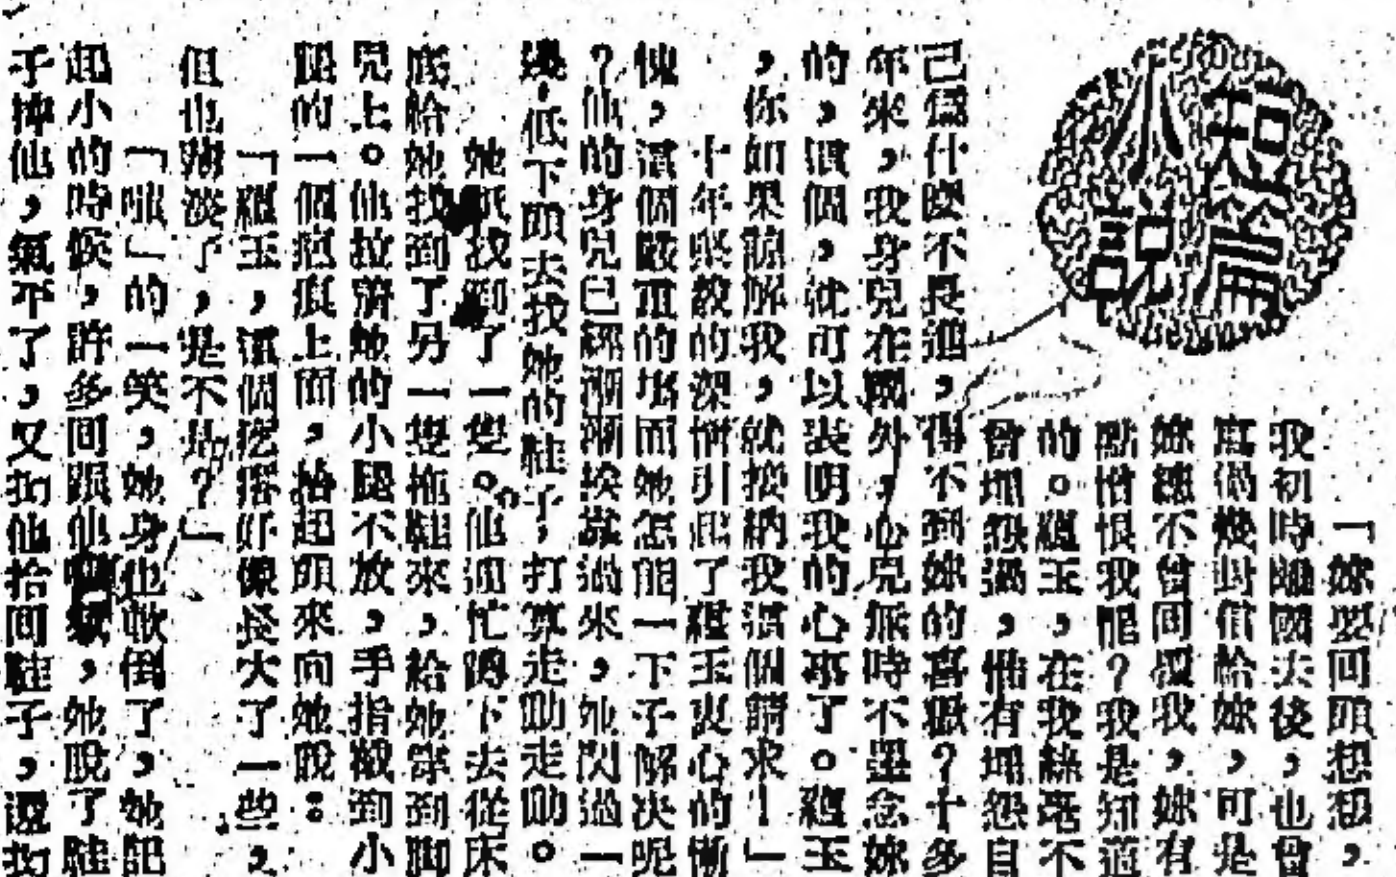 短篇
小説
「妳要回頭想想，
我初時離國去後，也曾
寫過幾封信給妳，可是
妳總不曾回報我，妳有
點憎恨我罷？我是知道
的。蘊玉，在我絲毫不
曾埋怨過，惟有埋怨自
己為什麼不長進，得不到妳的喜歡？十多
年來，我身兒在國外，心兒無時不罣念妳
的，這個，就可以表明我的心事了。蘊玉
，你如果諒解我，就接納我這個請求！」
十年久教的深情引起了蘊玉衷心的慚
愧，這個嚴重的場面她怎能一下子解決呢
？他的身兒已經漸漸挨靠過來，她閃過一
邊，低下頭去找她的鞋子，打算走動走動。
她祇找到了一隻。他連忙蹲下去從床
底給她找到了另一隻拖鞋來，給她穿到脚
兒上。他拉着她的小腿不放，手指觸到小
腿的一個疤痕上面，抬起頭來向她說：
「蘊玉，這個疙瘩好像長大了一些，
但也薄淡了，是不是？」
「嗤」的一笑，她身也軟倒了，她記
起小的時候，許多回跟他，她脫了鞋
子掉他，氣平了，又拘他拾回鞋子，還拘